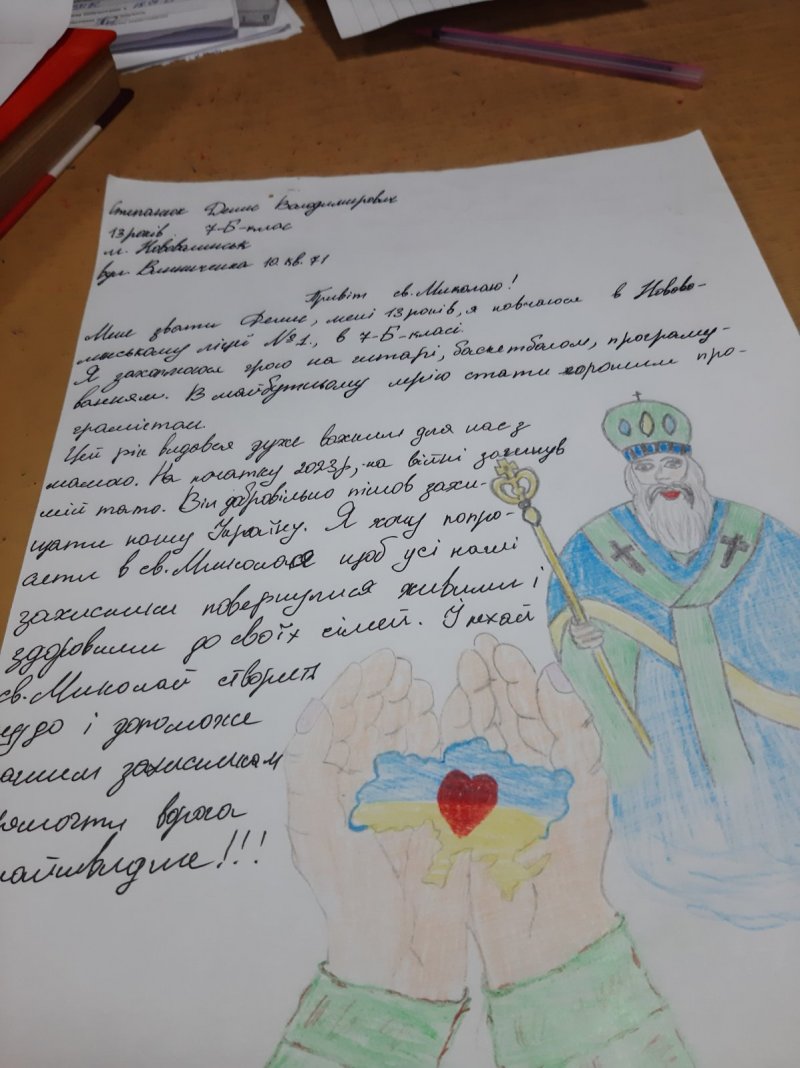 Степанюк Денис Володимирович
13 років 7-Б-клас
м. Нововолинськ
вул. Винниченка 10 кв. 71
Привіт св. Миколаю!
Мене звати Денис, мені 13 років, я навчаюся в Новово-
линському ліцеї №1., в 7-Б-класі.
Я захоплююся грою на гитарі, баскетболом, програму-
ванням. В майбутньому мрію стати хорошим про-
грамістом.
Цей рік видався дуже важким для нас з
мамою. На початку 2023р, на війні загинув
мій тато. Він добровільно пішов захи-
щати нашу Україну. Я хочу попро-
сити в св. Миколая щоб усі наші
захисники повернулися живими і
здоровими до своїх сімей. І нехай
св. Миколай створить
чудо і допоможе
нашим захисникам
ворога
найшвидше!!!